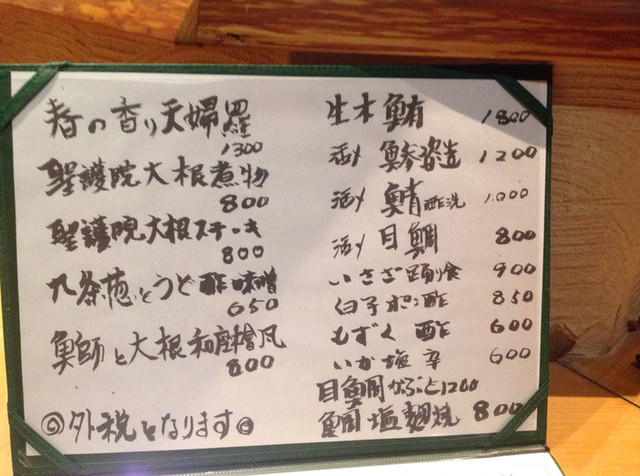 春の香り天婦羅
1300
聖護院大根煮物
800
聖護院大根ステーキ
800
九条葱とうど酢味噌
650
魚師と大根和座檜風
800
◎外税となります◎
生本鮪 1800
活〆 鯵姿造 1200
活〆 鯖酢洗 1.000
活〆 目鯛 800
いさざ踊り食 900
白子ポン酢 850
もずく 酢 600
いか塩辛 600
目鯛かぶと1200
鯛塩麹焼 800